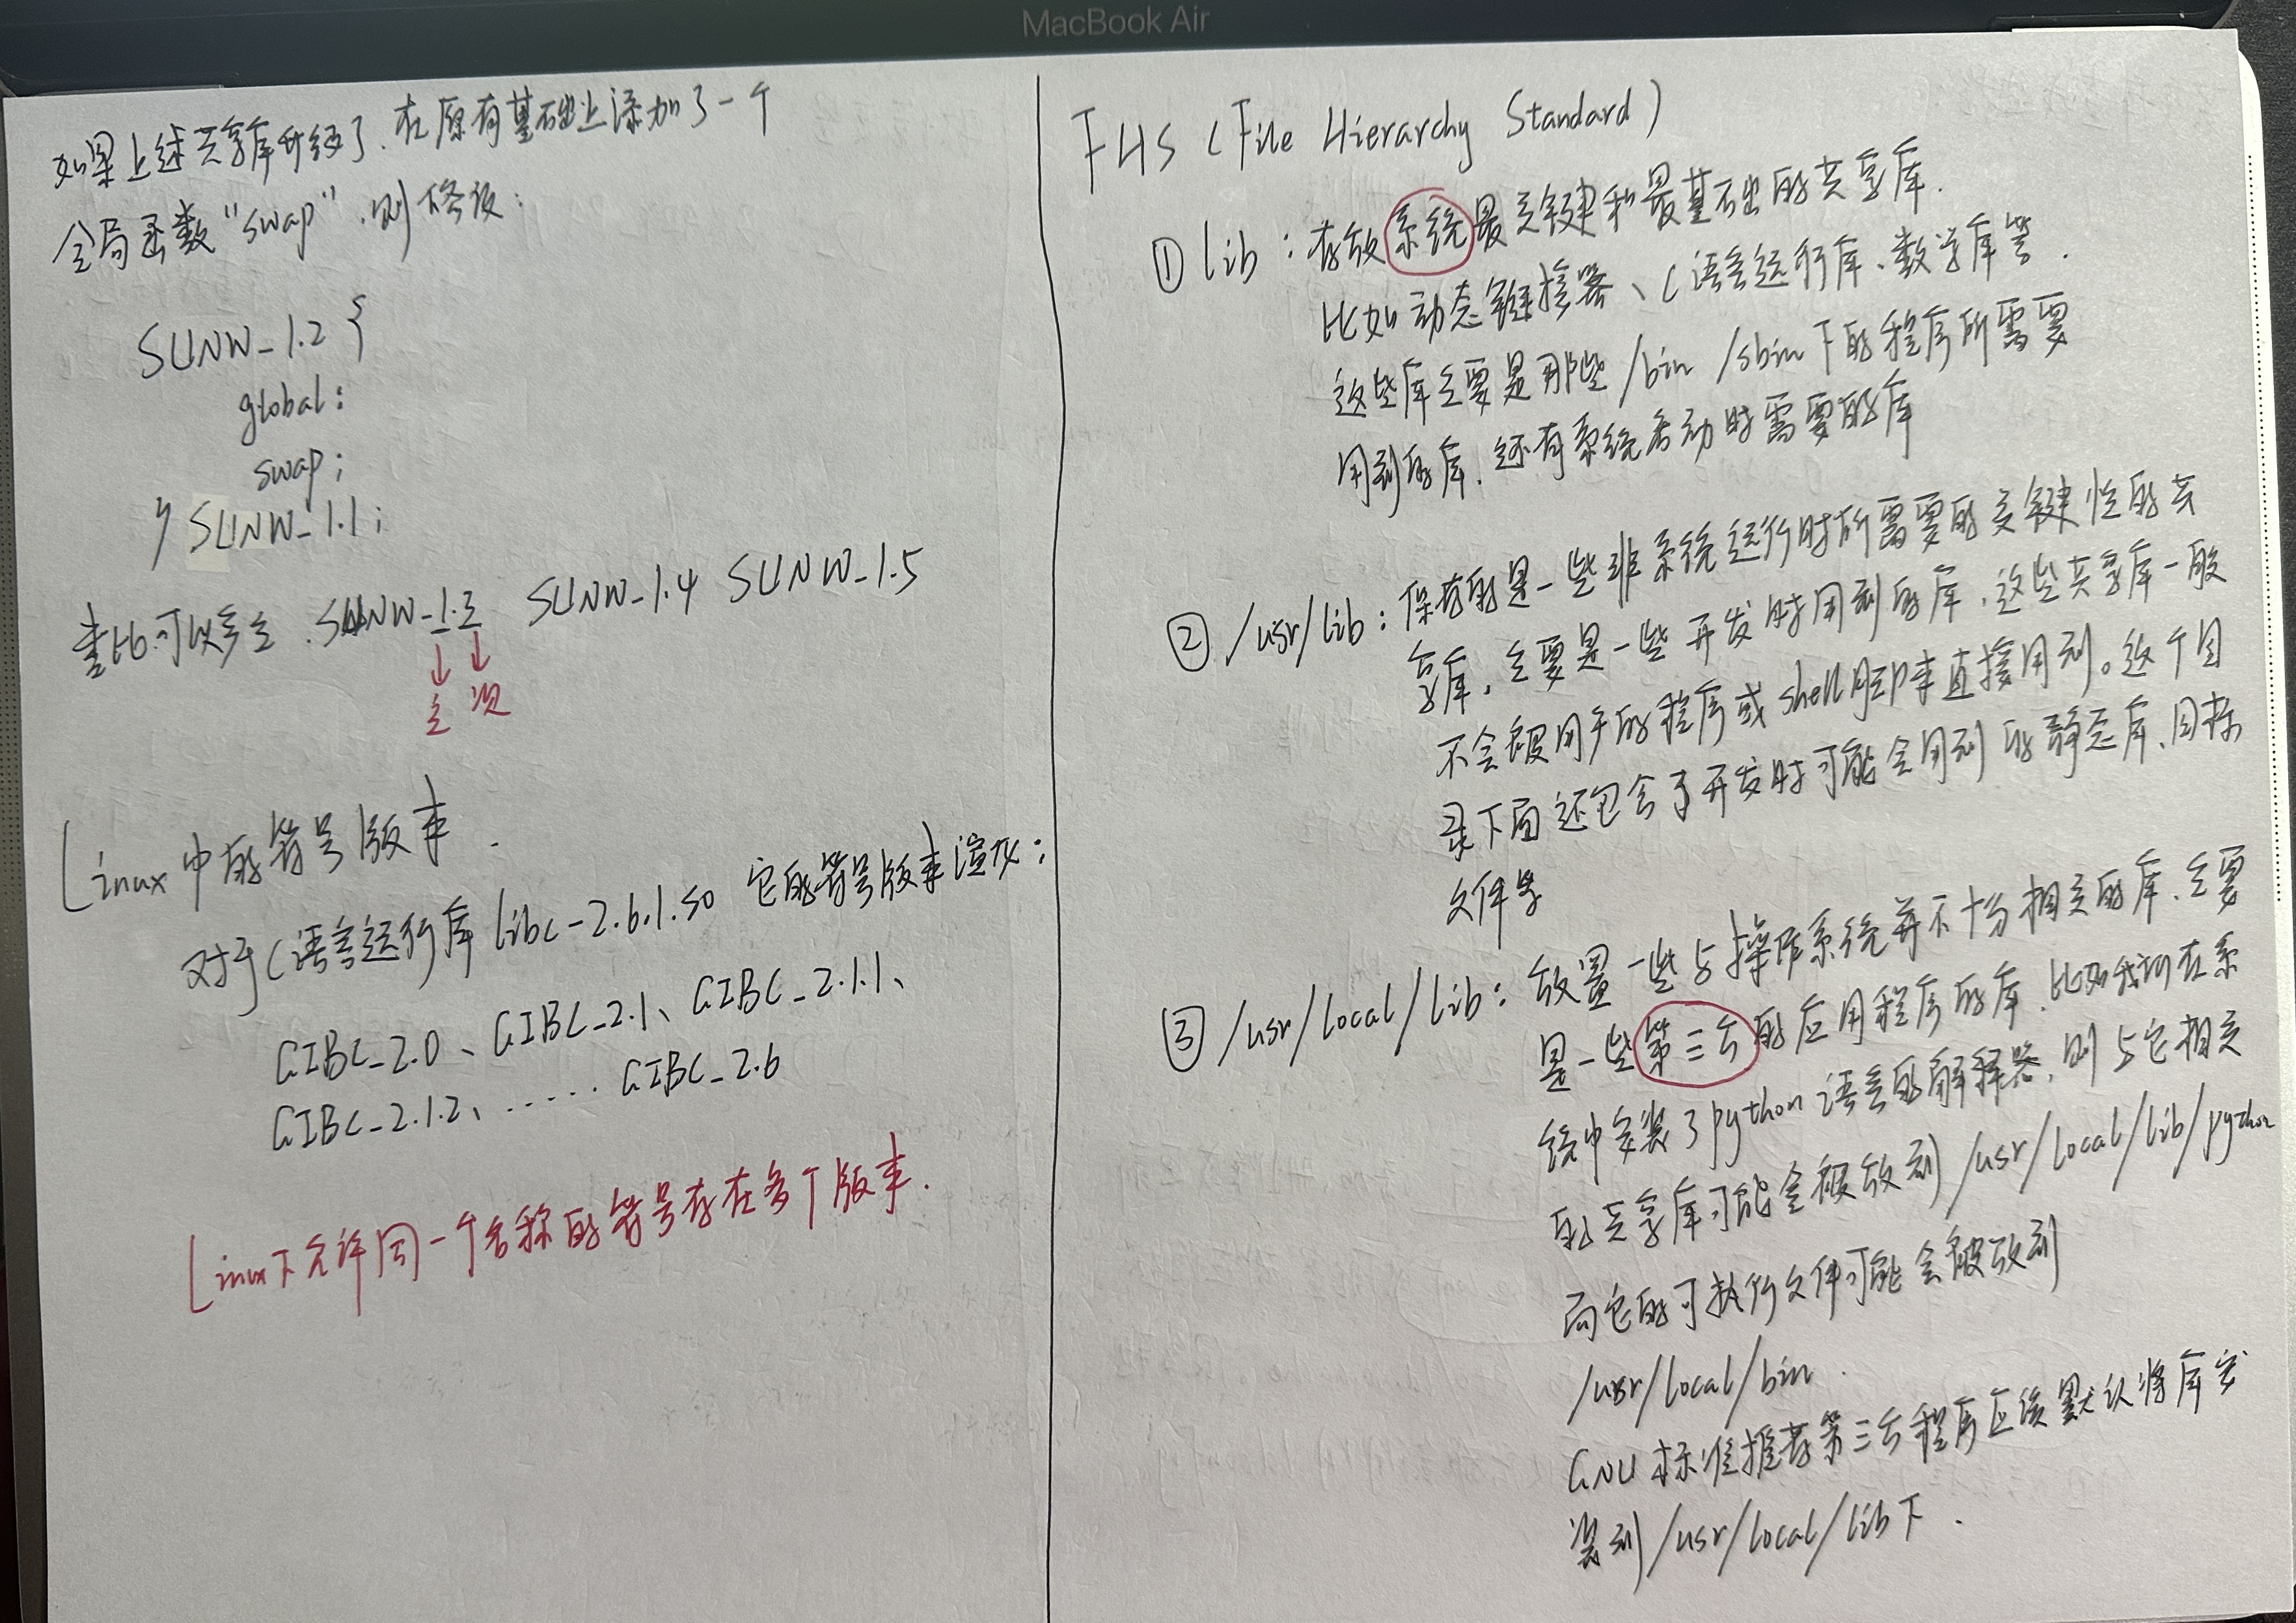 MacBook Air
如果上述共享库升级了.在原有基础上添加了一个
全局函数"swap".则修改:
SUNW_1.2 {
global:
swap;
} SUNW_1.1;
类比.可以多出.SUNW_1.3 SUNW_1.4 SUNW_1.5
↓ ↓
主 次
Linux中的符号版本.
对于C语言运行库 libc-2.6.1.so 它的符号版本演化:
GIBC_2.0、GIBC_2.1、GIBC_2.1.1、
GIBC_2.1.2、..... GIBC_2.6
Linux下允许同一个名称的符号存在多个版本.
FHS (File Hierarchy Standard)
① lib : 存放系统最关键和最基础的共享库.
比如动态链接器、C语言运行库、数学库等.
这些库主要是那些 /bin /sbin 下的程序所需要
用到的库.还有系统启动时需要的库
② /usr/lib: 保存的是一些非系统运行时所需要的关键性的共
享库.主要是一些开发时用到的库.这些共享库一般
不会被用户的程序或shell脚本直接用到。这个目
录下面还包含了开发时可能会用到的静态库、目标
文件等
③ /usr/local/lib: 放置一些与操作系统并不十分相关的库.主要
是一些第三方的应用程序的库.比如我们在系
统中安装了python语言的解释器.则与它相关
的共享库可能会被放到 /usr/local/lib/python
而它的可执行文件可能会被放到
/usr/local/bin.
GNU标准推荐第三方程序应该默认将库安
装到 /usr/local/lib下.